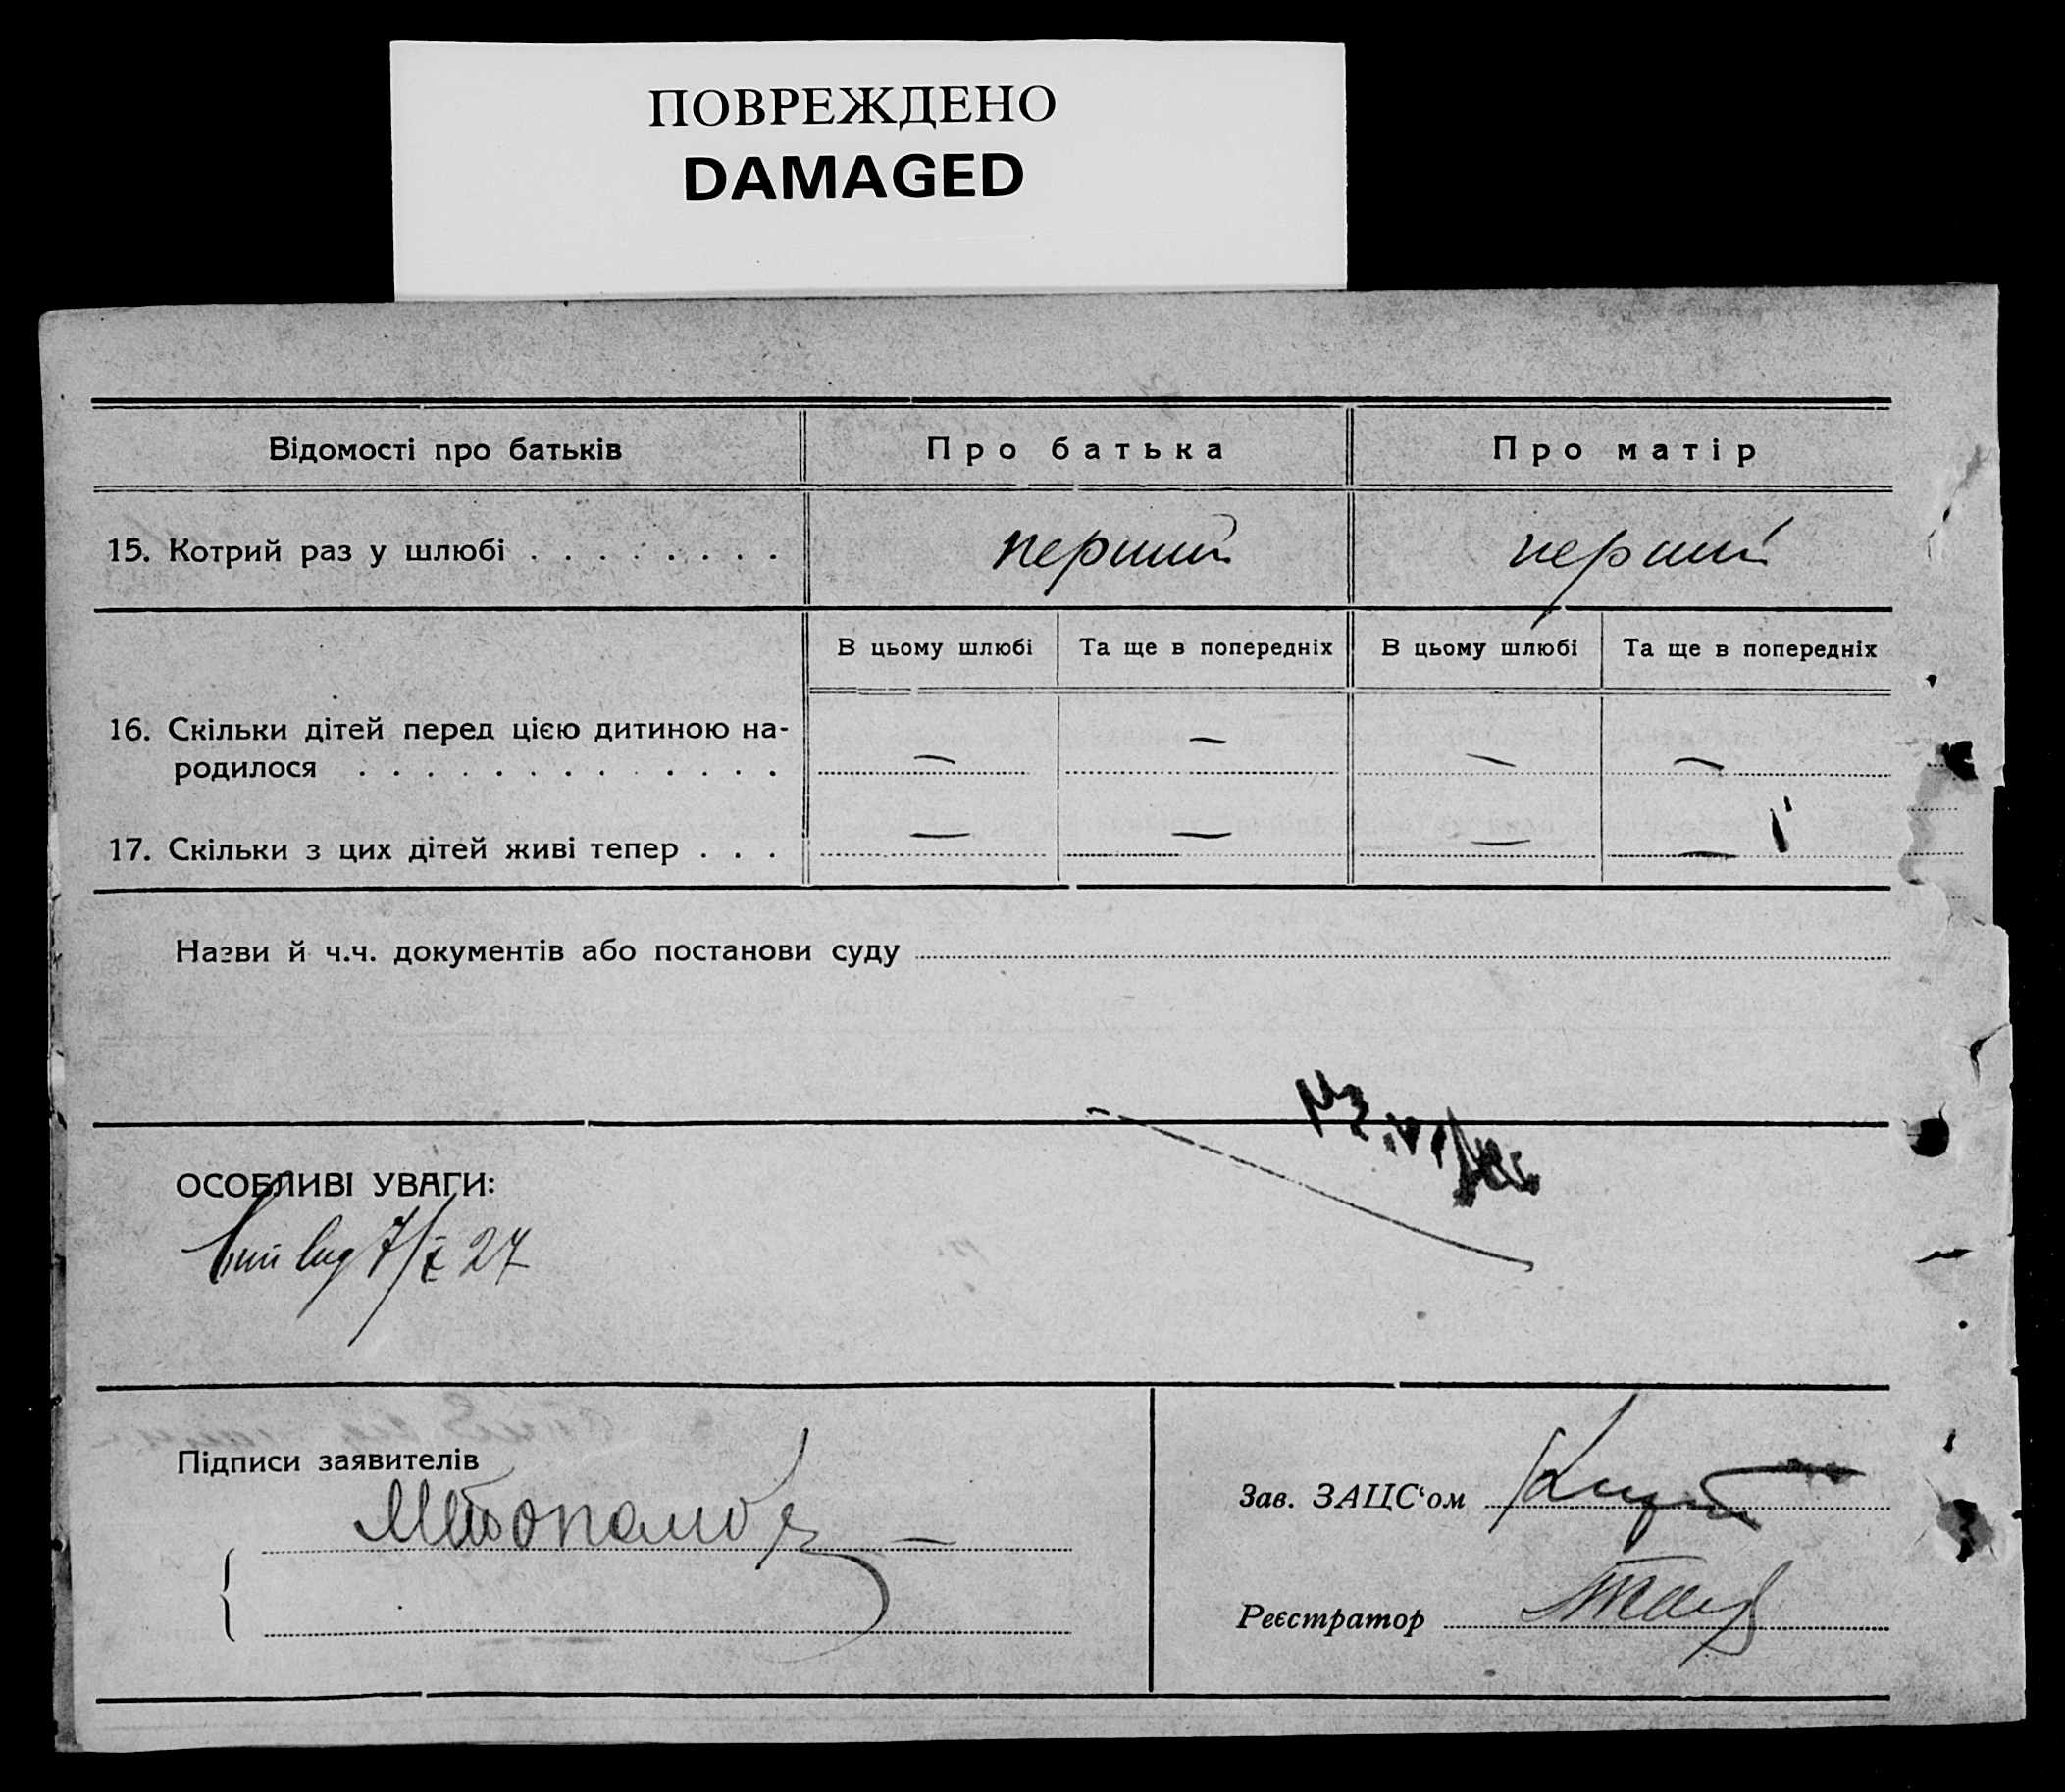 ПОВРЕЖДЕНО
DAMAGED
Відомості про батьків
Про батька
Про матір
15. Котрий раз у шлюбі . . . . . . . .
перший
перший
В цьому шлюбі
Та ще в попередніх
В цьому шлюбі
Та ще в попередніх
16. Скільки дітей перед цією дитиною на-
родилося . . . . . . . . . . . . .
—
—
—
—
17. Скільки з цих дітей живі тепер . . .
—
—
—
—
Назви й ч.ч. документів або постанови суду
ОСОБЛИВІ УВАГИ:
27
Підписи заявителів
Зав. ЗАЦС‘ом
Реєстратор